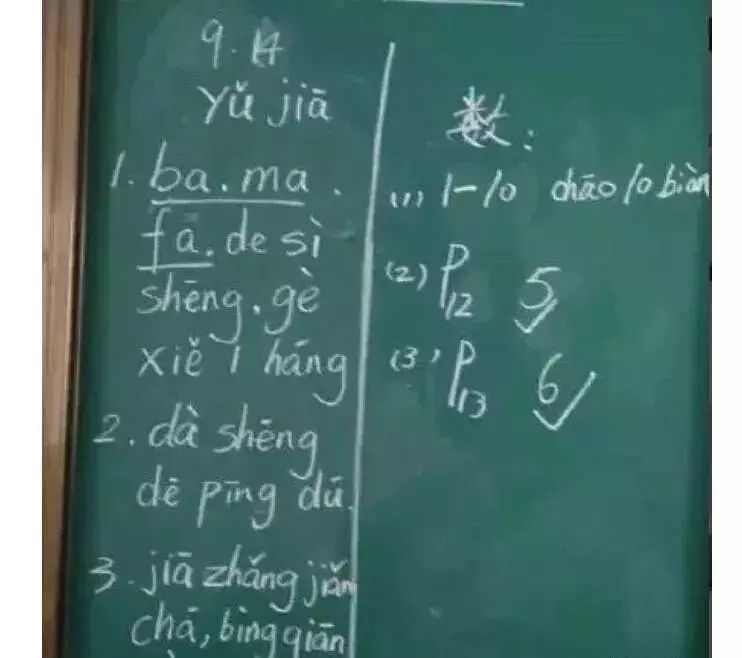 9.14
Yǔ jiā
1. ba. ma.
fā. de sì
shēng. gè
xiě 1 háng
2. dà shēng
dē pīng dú
3. jiā zhǎng jiǎn
chá, bìng qiān
数:
(1) 1-10 chāo 10 biàn
(2) P12 5✓
(3) P13 6✓